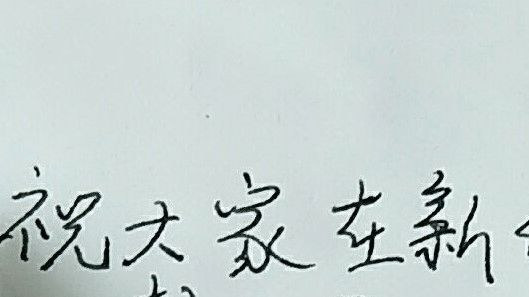 祝大家在新